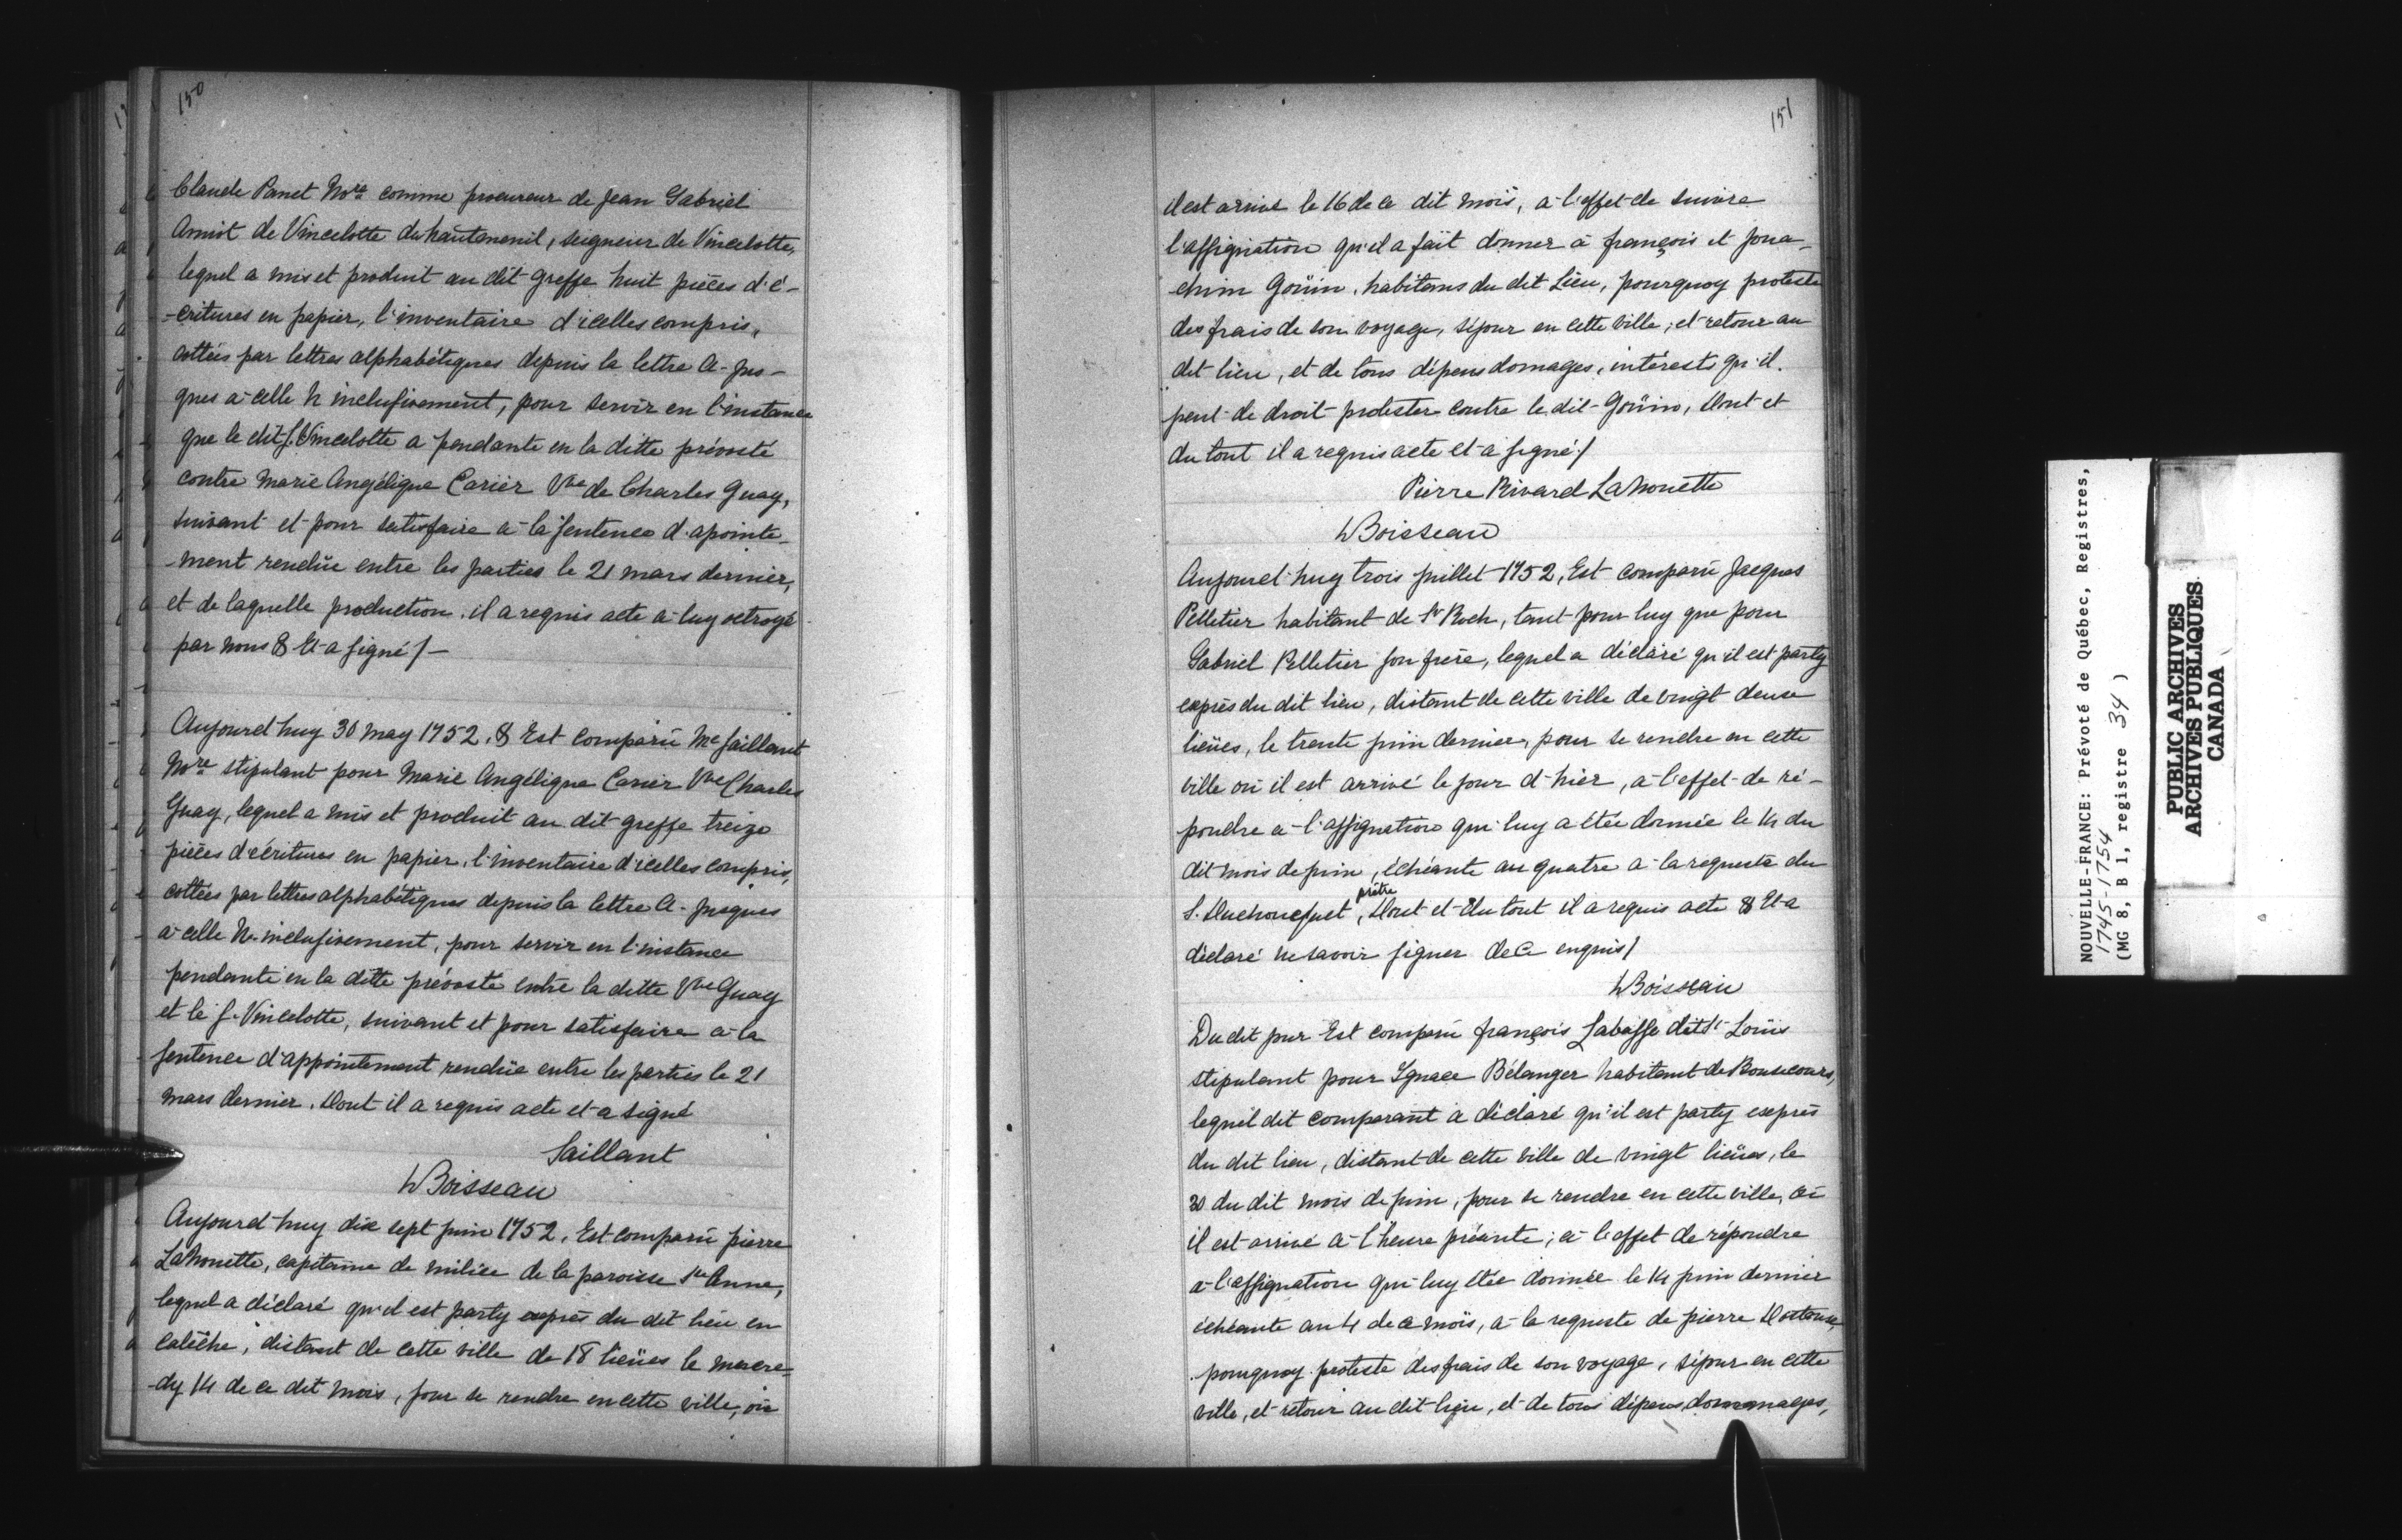 150
Claude Panet Nore comme procureur de Jean Gabriel
Amiot de Vincelotte du hautmenil, seigneur de Vincelotte,
lequel a mis et produit au dit greffe huit pièces d'é-
-critures en papier, l'inventaire d'icelles compris,
cottées par lettres alphabétiques depuis la lettre A. jus-
ques à celle h inclusivement, pour servir en l'instance
que le dit s. Vincelotte a pendante en la ditte prévosté
contre Marie Angélique Carier Vve de Charles Guay,
suivant et pour satisfaire a la sentence d'apointe-
-ment rendüe entre les parties le 21 mars dernier,
et de laquelle production il a requis acte a luy octroyé
par nous & Et a signé /-
Aujourd'huy 30 may 1752, & Est comparû Me Saillant
Nore stipulant pour Marie Angélique Carier Vve Charles
Guay, lequel a mis et produit au dit greffe treize
pièces d'écritures en papier, l'inventaire d'icelles compris,
cottées par lettres alphabétiques depuis la lettre A. jusques
a celle N. inclusivement, pour servir en l'instance
pendante en la ditte prévosté entre la ditte Vve Guay
et le s. Vincelotte, suivant et pour satisfaire a la
sentence d'appointement rendüe entre les parties le 21
mars dernier. Dont il a requis acte et a signé
Saillant
Boisseau
Aujourd'huy dix sept juin 1752, Est comparû pierre
LaNouette, capitaine de milice de la paroisse Ste Anne,
lequel a déclaré qu'il est party exprès du dit lieu en
calèche, distant de cette ville de 18 lieües le mercre-
-dy 14 de ce dit mois, pour se rendre en cette ville, où
151
il est arrivé le 16 de ce dit mois, a l'effet de suivre
l'assignation qu'il a fait donner à françois et Joua-
-chim Goüin, habitans du dit Lieu, pourquoy proteste
des frais de son voyage, séjour en cette ville, et retour au
dit lieu, et de tous dépens domages, intérests qu'il
peut de droit protester contre le dit Goüin, Dont et
du tout il a requis acte et a signé /
Pierre Rivard LaNouette
Boisseau
Aujourd'huy trois juillet 1752, Est comparû Jacques
Pelletier habitant de St Roch, tant pour luy que pour
Gabriel Pelletier son frère, lequel a déclaré qu'il est party
exprès du dit lieu, distant de cette ville de vingt deux
lieües, le trente juin dernier, pour se rendre en cette
ville où il est arrivé le jour d'hier, a l'effet de ré-
pondre a l'assignation qui luy a étée donnée le 14 du
dit mois de juin, échéante au quatre a la requeste du
S. Duchouquet prêtre, Dont et du tout il a requis acte & Et a
déclaré ne savoir signer de ce enquis /
Boisseau
Du dit jour Est comparû françois Labasse dit St Loüis
stipulant pour Ignace Bélanger habitant de Bonsecours,
lequel dit comparant a déclaré qu'il est party exprès
du dit lieu, distant de cette ville de vingt lieües, le
30 du dit mois de juin, pour se rendre en cette ville, où
il est arrivé a l'heure présente; a l'effet de répondre
a l'assignation qui luy étée donnée le 14 juin dernier
échéante au 4 de ce mois, a la requeste de pierre
pourquoy proteste des frais de son voyage, séjour en cette
ville, et retour au dit lieu, et de tous dépens dommages,
NOUVELLE-FRANCE: Prévoté de Québec, Registres,
1745-1754
(MG 8, B 1, registre 34 )
PUBLIC ARCHIVES
ARCHIVES PUBLIQUES
CANADA